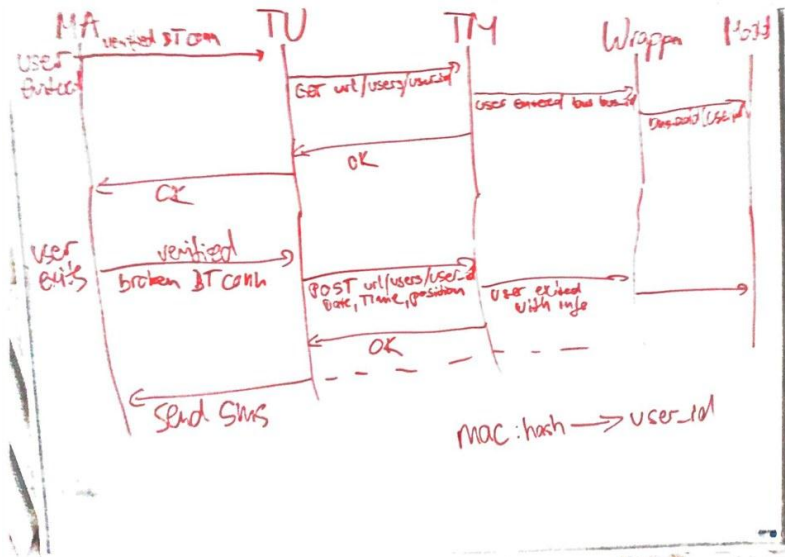 MA TU TM Wrapper
user
entered
verified BT conn
GET url/users/user_id
user entered bus bus_id
OK
OK
user
exits
verified
broken BT conn
POST url/users/user_id
Date, Time, position
User exited
with info
OK
Send SMS
mac:hash → user_id